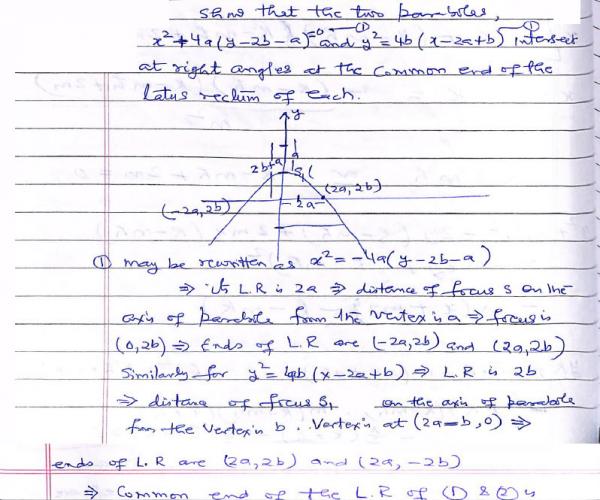 show that the two parabolas,
x² + 4a(y-2b-a)=0 — ① and y² = 4b(x-2a+b) — ① intersect
at right angles at the common end of the
Latus rectum of each.
y
a
2b+a S₁(
(2a, 2b)
(-2a, 2b) -2a-
① may be rewritten as x² = -4a(y-2b-a)
⇒ its L.R is 2a ⇒ distance of focus S on the
axis of parabola from the vertex is a ⇒ focus is
(0,2b) ⇒ Ends of L.R are (-2a,2b) and (2a,2b)
Similarly for y² = 4b(x-2a+b) ⇒ L.R is 2b
⇒ distance of focus S₁ on the axis of parabola
from the vertex is b. Vertex is at (2a-b,0) ⇒
ends of L.R are (2a,2b) and (2a,-2b)
⇒ Common end of the L.R of ① & ② is